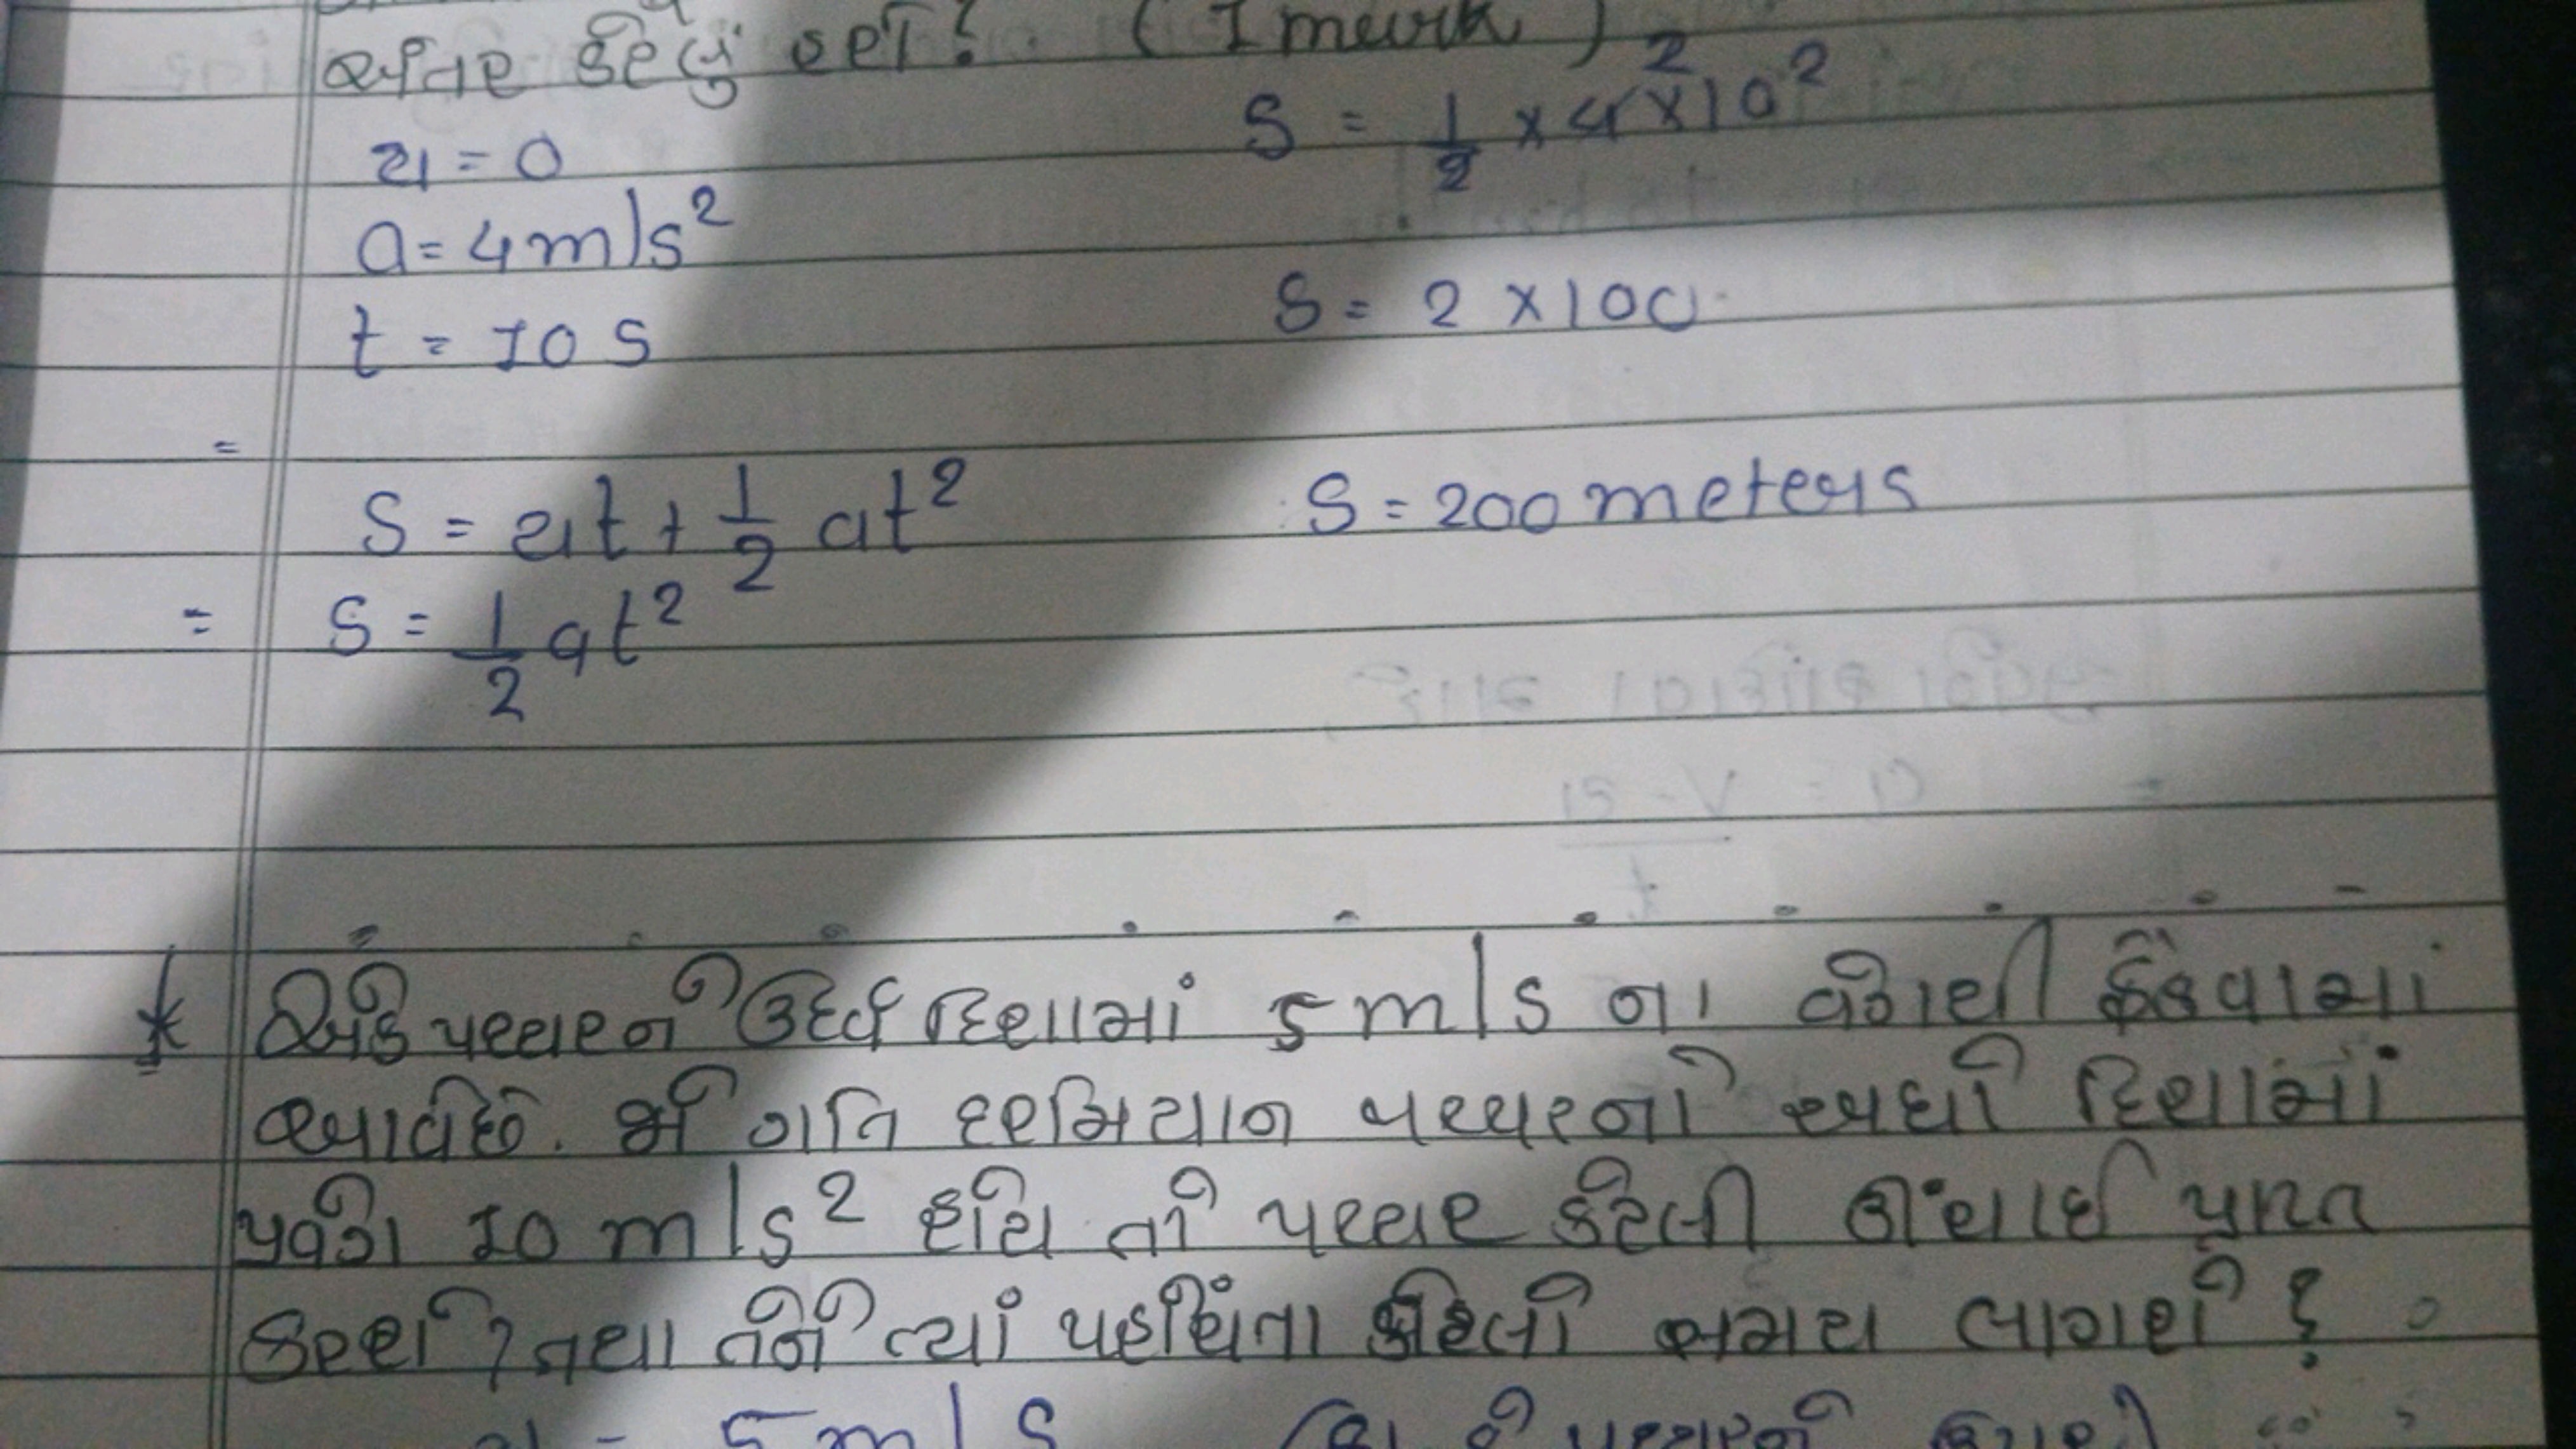 અંતર કેટલું હશે? (1 mark)
u = 0
a = 4 m/s²
t = 10 s
= S = ut + 1/2 at²
= S = 1/2 at²
S = 1/2 × 4 × 10² 2
S = 2 × 100
S = 200 meters
* એક પથ્થરને ઉર્ધ્વ દિશામાં 5 m/s ના વેગથી ફેંકવામાં
આવે છે. જો ગતિ દરમિયાન પથ્થરનો અધો દિશામાં
પ્રવેગ 10 m/s² હોય તો પથ્થર કેટલી ઊંચાઈ પ્રાપ્ત
કરશે? તથા તેને ત્યાં પહોંચતા કેટલો સમય લાગશે?
u = 5 m/s